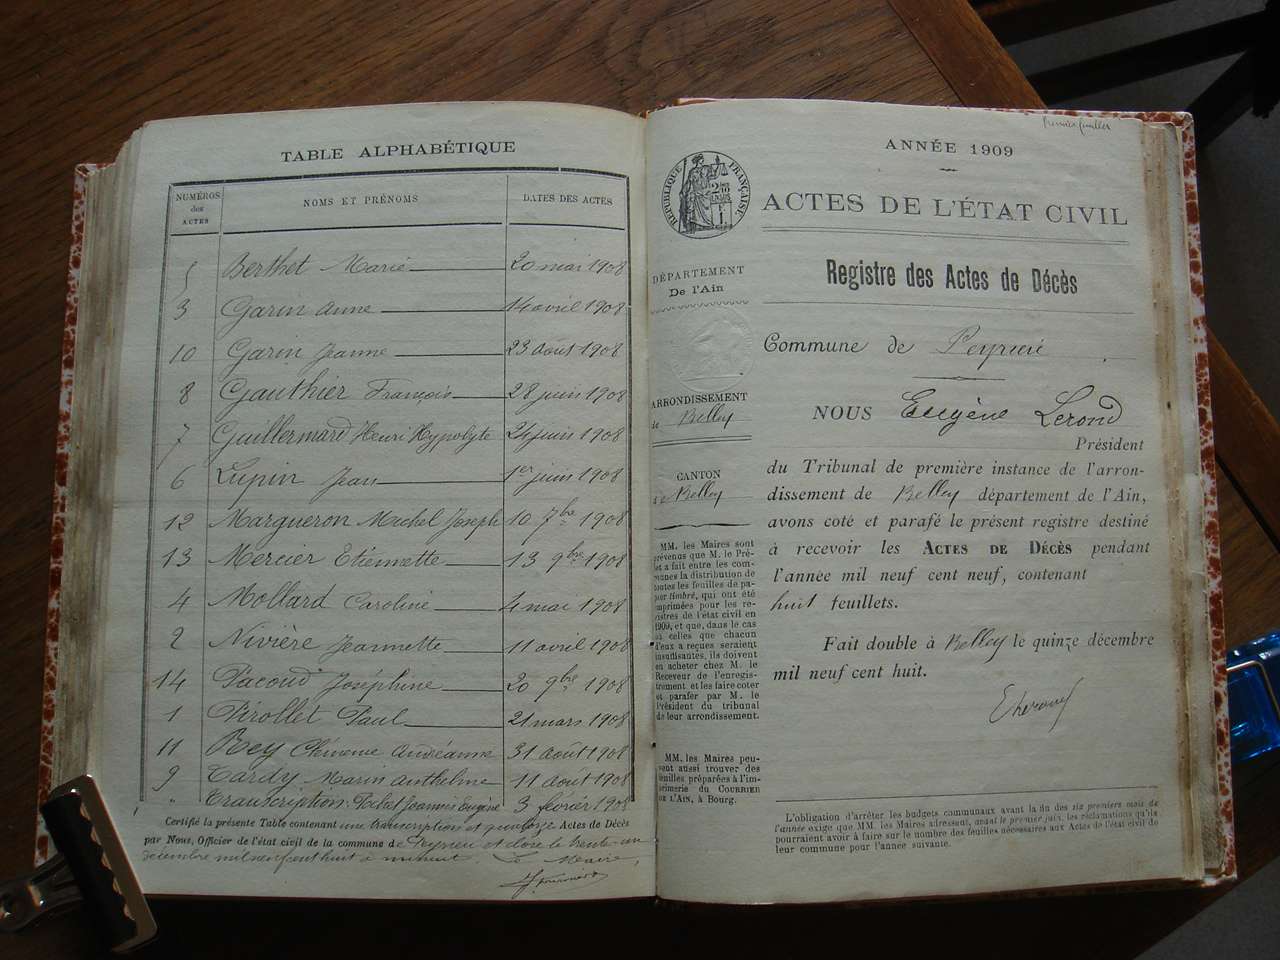 TABLE ALPHABÉTIQUE
NUMÉROS des ACTES NOMS ET PRÉNOMS DATES DES ACTES
5 Berthet Marie 20 mai 1908
3 Garin Anne 14 avril 1908
10 Garin Jeanne 23 août 1908
8 Gauthier François 28 juin 1908
7 Guillermard Henri Hypolyte 24 juin 1908
6 Lupin Jean 1er juin 1908
12 Margueron Michel Joseph 10 7bre 1908
13 Mercier Etiennette 13 9bre 1908
4 Mollard Caroline 4 mai 1908
2 Nivière Jeannette 11 avril 1908
14 Pacoud Joséphine 20 9bre 1908
1 Pirollet Paul 21 mars 1908
11 Rey Andréanne 31 août 1908
9 Tardy Marin Anthelme 11 août 1908
" Transcription: Jeannin Eugène 3 février 1908
Certifié la présente Table contenant une transcription et quatorze Actes de Décès
par Nous, Officier de l'état civil de la commune de Peyrieu et close le trente-un
décembre mil neuf cent huit à minuit. Le Maire,
première feuillet
ANNÉE 1909
RÉPUBLIQUE FRANÇAISE
ACTES DE L'ÉTAT CIVIL
DÉPARTEMENT
De l'Ain
Registre des Actes de Décès
Commune de Peyrieu
ARRONDISSEMENT
de Belley
CANTON
de Belley
NOUS Eugène Lerond
Président
du Tribunal de première instance de l'arron-
dissement de Belley département de l'Ain,
avons coté et parafé le présent registre destiné
à recevoir les ACTES DE DÉCÈS pendant
l'année mil neuf cent neuf, contenant
huit feuillets.
Fait double à Belley le quinze décembre
mil neuf cent huit.
MM. les Maires sont
prévenus que M. le Pré-
fet a fait entre les com-
munes la distribution de
toutes les feuilles de pa-
pier timbré, qui ont été
imprimées pour les re-
gistres de l'état civil en
1909, et que, dans le cas
où celles que chacun
d'eux a reçues seraient
insuffisantes, ils doivent
en acheter chez M. le
Receveur de l'enregis-
trement et les faire coter
et parafer par M. le
Président du tribunal
de leur arrondissement.
MM. les Maires peu-
vent aussi trouver des
feuilles préparées à l'im-
primerie du COURRIER
DE L'AIN, à Bourg.
L'obligation d'arrêter les budgets communaux avant la fin des six premiers mois de
l'année exige que MM. les Maires adressent, avant le premier juin, les réclamations qu'ils
pourraient avoir à faire sur le nombre des feuilles nécessaires aux Actes de l'état civil de
leur commune pour l'année suivante.